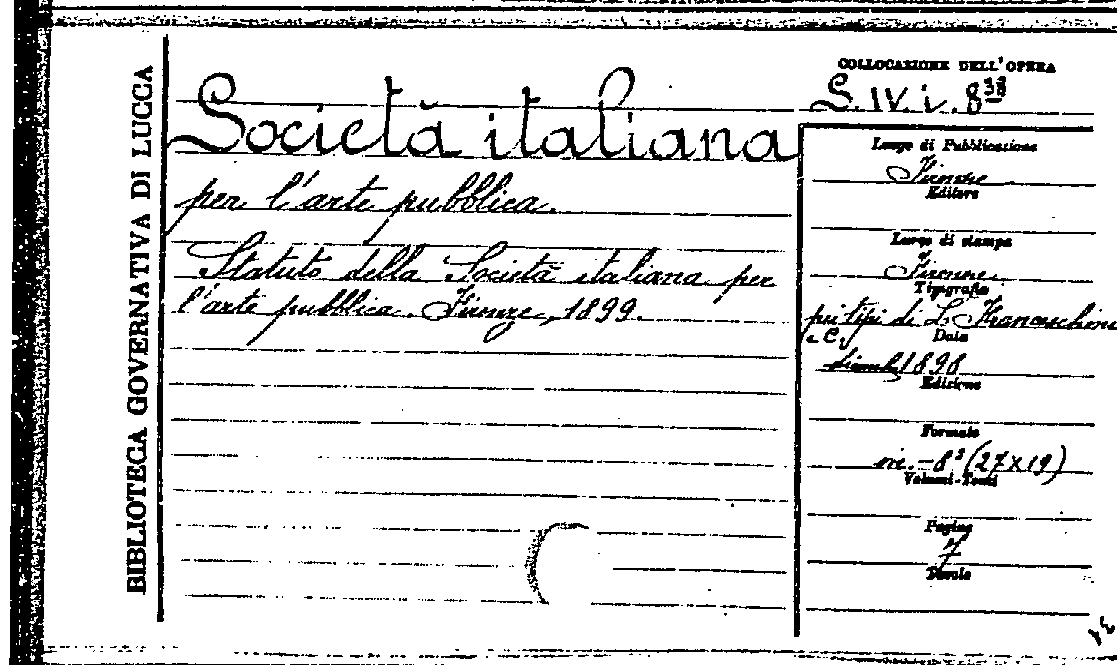 BIBLIOTECA GOVERNATIVA DI LUCCA
Società italiana
per l'arte pubblica.
Statuto della Società italiana per
l'arte pubblica. Firenze, 1899.
COLLOCAZIONE DELL'OPERA
S. IV. i. 8
Luogo di Pubblicazione
Firenze
Editore
Luogo di stampa
Firenze
Tipografia
pei tipi di L. Franceschini
e C.i
Data
1898
Edizione
Formato
in.-8° (27x19)
Volumi-Tomi
Pagine
7
Tavole